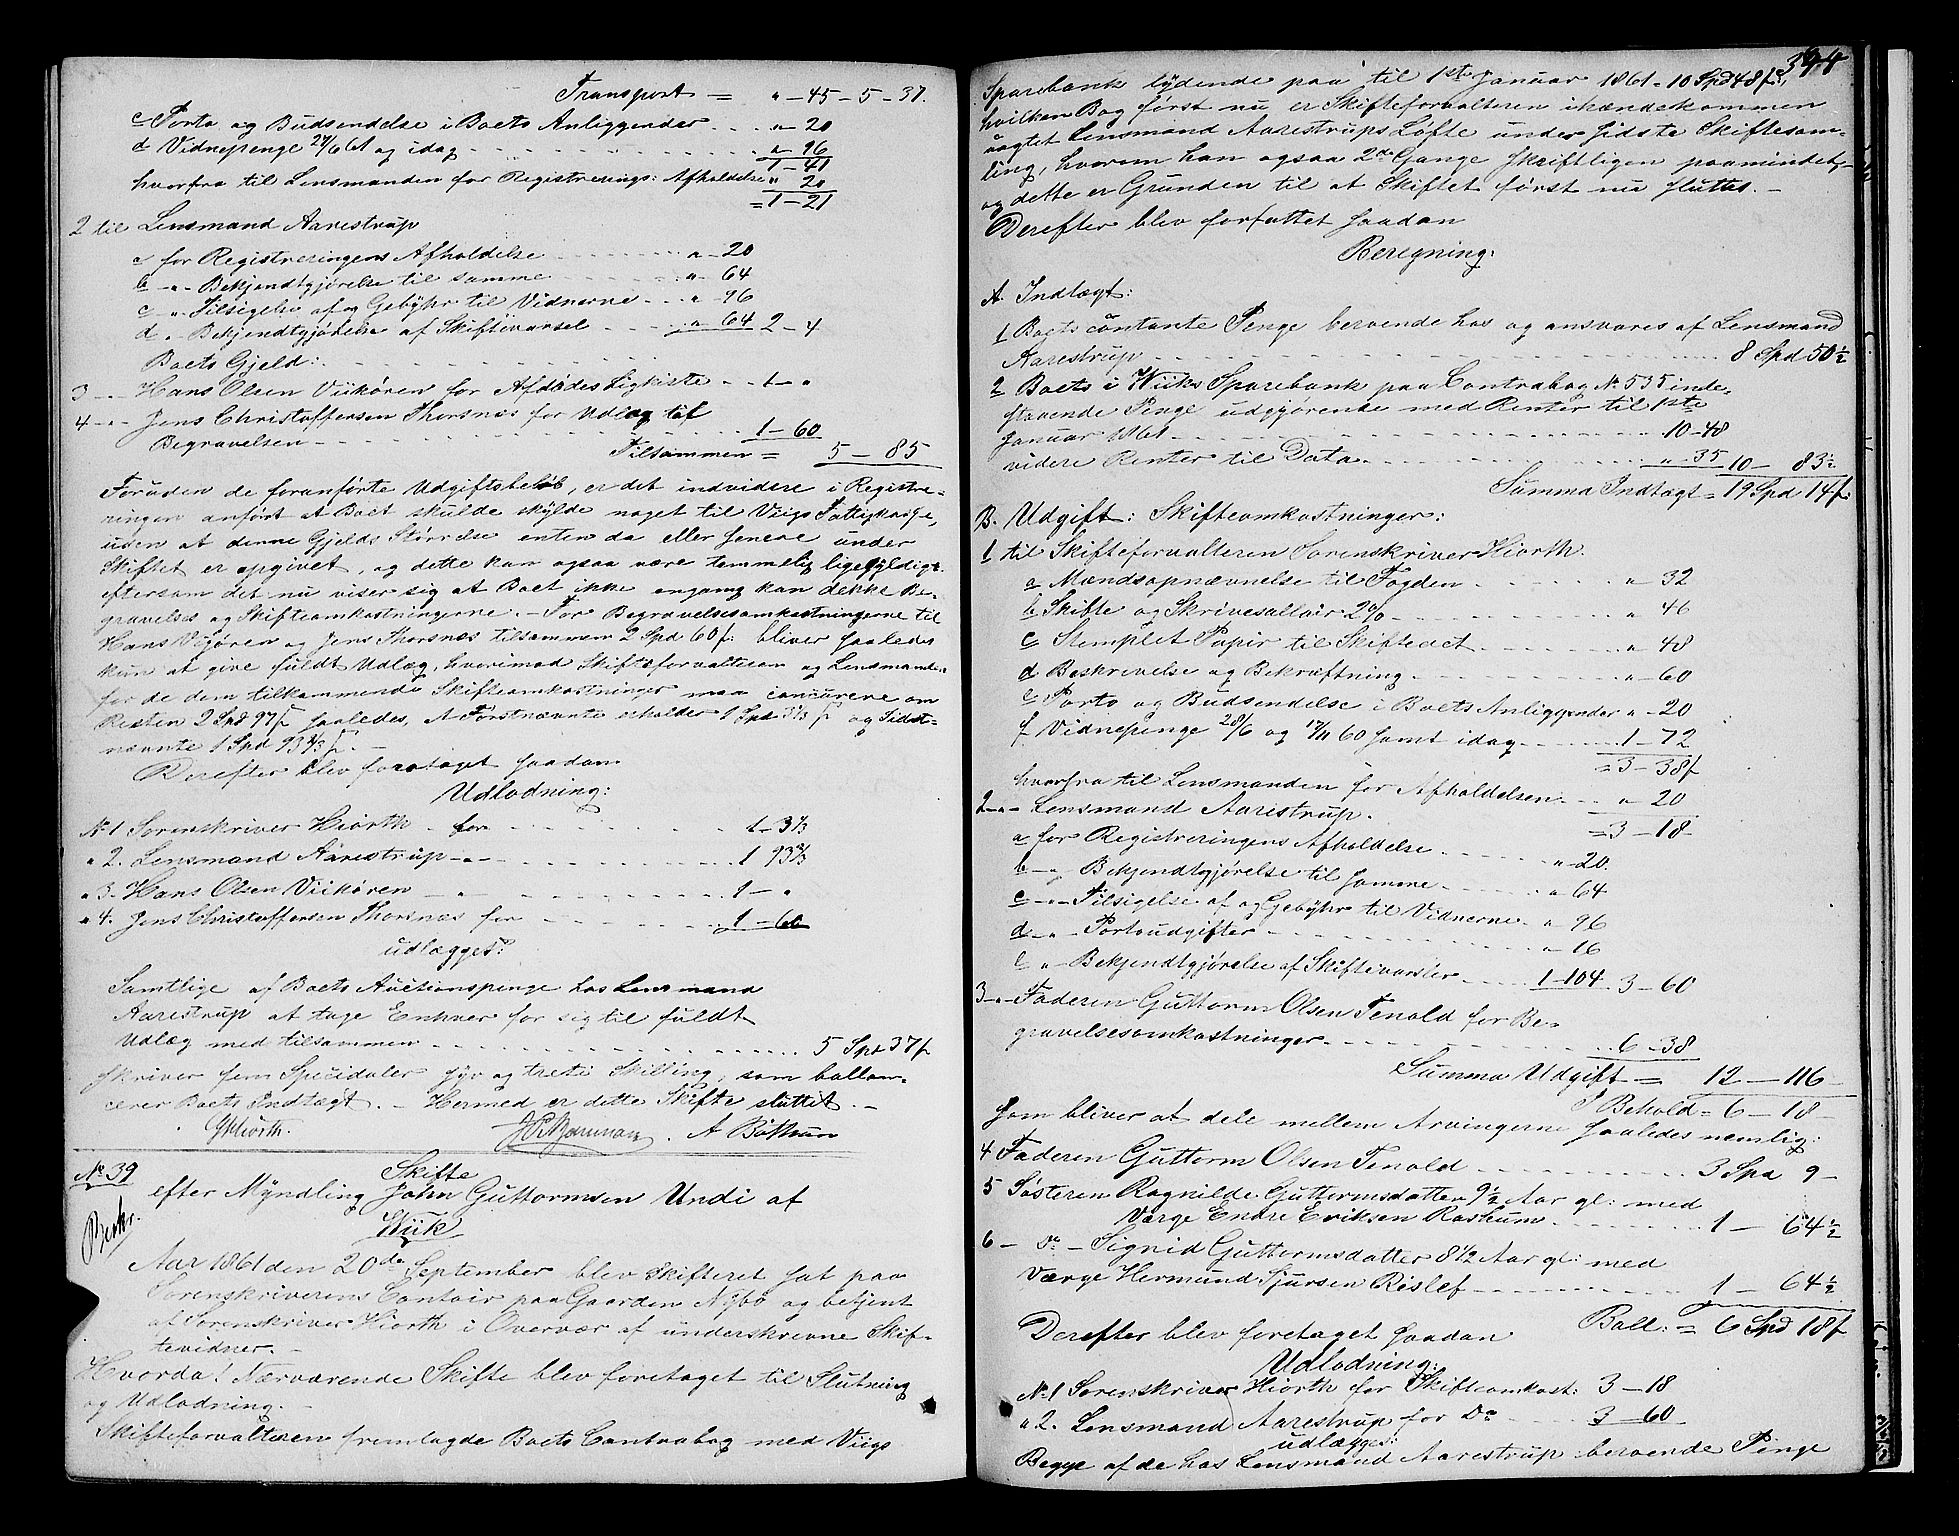 Transport = " - 45 - 5 - 37.
c Porto og Budsendelse i Boets Anliggender . . . " - 20
d Vidnepenge 24/6 61 og idag . . . " 96
1 - 41
hvorfra til Lensmanden for Registrerings: Afholdelse " 20
= 1 - 21
2 til Lensmand Aarestrup
a for Registreringens Afholdelse . . . " - 20
b - " - Bekjendtgjørelse til samme . . . " - 64
c - " - Tilsigelse af og Gebyhr til Vidnerne . . " - 96
d . - Bekjendtgjørelse af Skiftevarsel . . . " 64 2 - 4
Boets Gjeld:
3 - " - Hans Olsen Viikøren for Afdødes Ligkiste . . 1 - "
4 - " - Jens Christoffersen Thorsnæs for Udlæg til
Begravelsen . . . 1 - 60
Tilsammen = 5 - 85
Foruden de foranførte Udgiftsbeløb, er det indvidere i Registre-
ringen anført at Boet skulde skylde noget til Viigs Fattigkasse,
uden at denne Gjelds Størrelse enten da eller senere under
Skiftet er opgivet, og dette kan ogsaa være temmelig ligegyldigt
eftersom det nu viser sig at Boet ikke engang kan dække Be-
gravelses og Skifteomkostningerne. - For Begravelsesomkostningerne til
Hans Vigøren og Jens Thorsnæs tilsammen 2 Spd 60 f. bliver saaledes
kun at give fuldt Udlæg, hvorimod Skifteforvalteren og Lensmanden
for de dem tilkommende Skifteomkostninger maa concurere om
Resten 2 Spd 97 f saaledes, at Førstnævnte erholder 1 Spd 3 1/3 f og Sidst-
nævnte 1 Spd 93 2/3 f. -
Derefter blev foretaget saadan
Udlodning:
No 1 Sorenskriver Hiorth . for . . . 1 - 3 1/3
" 2. Lensmand Aarestrup - " - . . . 1 93 2/3
" 3. Hans Olsen Viikøren - " . . . 1 - "
" 4. Jens Christoffersen Thorsnæs for . . . 1 - 60
udlægges:
Samtlige af Boets Auctionspenge hos Lensmand
Aarestrup at tage Enhver for sig til fuldt
Udlæg med tilsammen . . . 5 Spd 37 f
skriver fem Speciedaler syv og treti Skilling, som ballan-
cerer Boets Indtægt. - Hermed er dette Skifte sluttet. -
GHiorth. A Böthun
No 39 Skifte
efter Myndling John Guttormsen Undi af
Wiik
Beskr.
Aar 1861 den 20de September blev Skifteret sat paa
Sorenskriverens Contoir paa Gaarden Nybø og betjent
af Sorenskriver Hiorth i Overvær af underskrevne Skif-
tevidner. -
Hvorda! Nærværende Skifte blev foretaget til Slutning
og Udlodning. -
Skifteforvalteren fremlagde Boets Contrabog med Viigs
394
Sparebank lydende paa til 1ste Januar 1861 = 10 Spd 48 f,
hvilken Bog først nu er Skifteforvalteren ihændekommen
uagtet Lensmand Aarestrups Løfte under sidste Skiftesam-
ling, hvorom han ogsaa 2de Gange skriftligen paamindet, -
og dette er Grunden til at Skiftet først nu sluttes. -
Derefter blev forfattet saadan
Beregning:
A. Indtægt:
1 Boets contante Penge beroende hos og ansvares af Lensmand
Aarestrup . . . 8 Spd 50 1/2
2 Boets i Wiiks Sparebank paa Contrabog No 535 inde-
staaende Penge udgjørende med Renter til 1ste
Januar 1861 . . . 10 - 48
videre Renter til Dato . . . " 35 1/2 10 - 83 1/2
Summa Indtægt = 19 Spd 14 f.
B. Udgift: Skifteomkostninger:
1 til Skifteforvalteren Sorenskriver Hiorth.
a Mandsopnævnelse til Fogden . . . " 32
b Skifte og Skrivesallair 2% . . . " 46
c Stemplet Papir til Skifteact . . . " 48
d Beskrivelse og Bekræftning . . . " - 60
e Porto og Budsendelse i Boets Anliggender " - 20
f Vidnepenge 28/6 og 17/11 60 samt idag . . . 1 - 72
= 3 - 38 f
hvorfra til Lensmanden for Afholdelsen . . " 20
= 3 - 18
2 - " - Lensmand Aarestrup.
a for Registreringens Afholdelse . . . " - 20.
b - " Bekjendtgjørelse til samme . . . " 64
c - " - Tilsigelse af og Gebyhr til Vidnerne . " 96
d - " - Portoudgifter . . . " 16
e " - Bekjendtgjørelse af Skiftevarsler . . . 1 - 104 3 - 60
3 - " - Faderen Guttorm Olsen Tenold for Be-
gravelsesomkostninger . . . 6 - 38
Summa Udgift = 12 - 116 -
I Behold = 6 - 18 -
som bliver at dele mellem Arvingerne saaledes nemlig:
4 Faderen Guttorm Olsen Tenold . . . 3 Spd 9 -
5 Søsteren Ragnilde Guttormsdatter 9 1/2 Aar gl: med
Værge Endre Eriksen Roshum . . . 1 - 64 1/2
6 - do - Sigrid Guttormsdatter 8 1/2 Aar gl: med
Værge Hermund Sjursen Rislef . . . 1 - 64 1/2
Ball: = 6 Spd 18 f
Derefter blev foretaget saadan
Udlodning:
No 1 Sorenskriver Hiorth for Skifteomkost: 3 - 18
" 2. Lensmand Aarestrup for Do . . . 3 - 60
udlægges:
Begge af de hos Lensmand Aarestrup beroende Penge